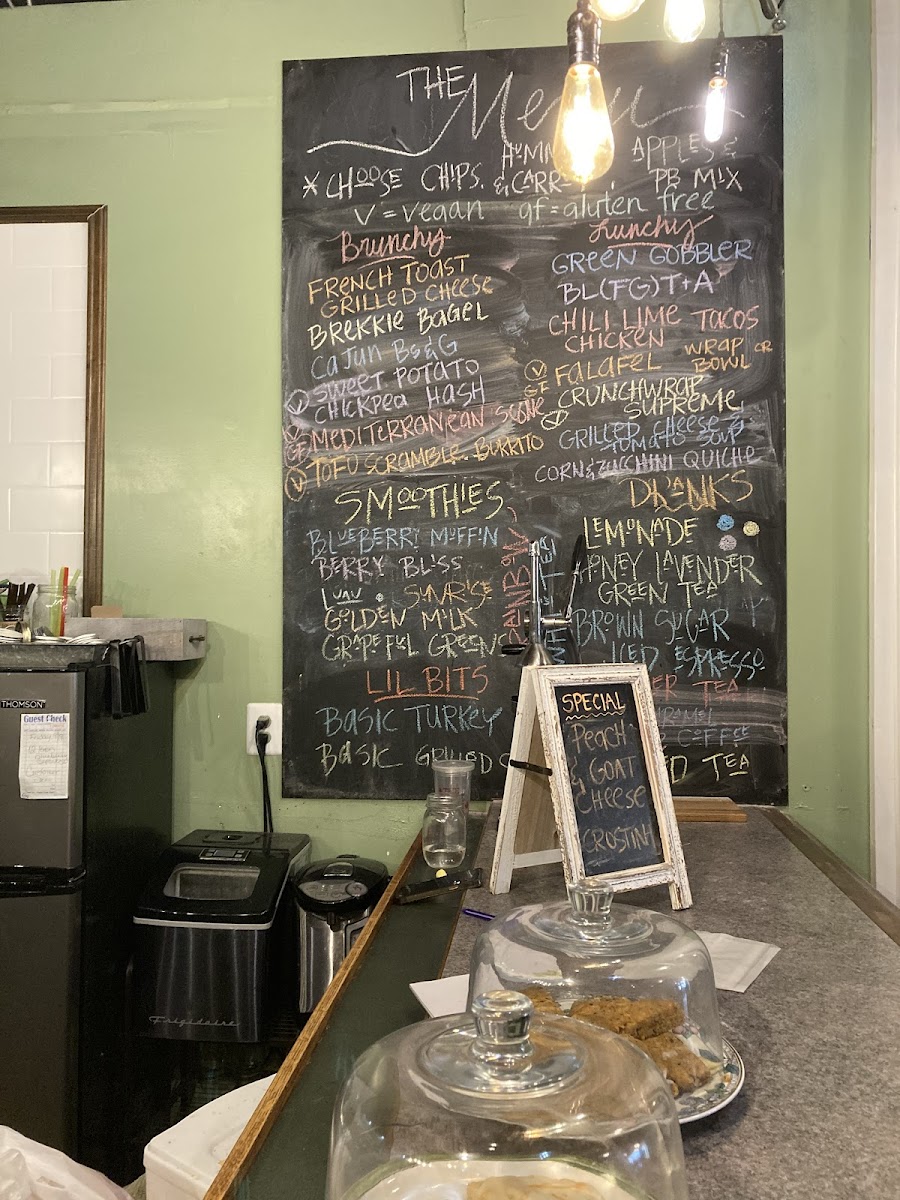 THE Menu
HUMM APPLES &
* CHOOSE CHIPS, & CARRO PB MIX
V = vegan gf = gluten free
Brunchy
FRENCH TOAST
GRILLED CHEESE
BREKKIE BAGEL
CAJUN BS&G
V SWEET POTATO
CHICKPEA HASH
V GF MEDITERRANEAN SCONE
V TOFU SCRAMBLE BURRITO
Lunchy
GREEN GOBBLER
BL(FG)T+A
CHILI LIME TACOS
CHICKEN
V GF FALAFEL WRAP OR BOWL
CRUNCHWRAP
V SUPREME
GRILLED CHEESE &
TOMATO SOUP
CORN & ZUCCHINI QUICHE
SMOOTHIES
BLUEBERRY MUFFIN
BERRY BLISS
LUAU • SUNRISE
GOLDEN MILK
GRAPEFUL GREENS
RAINBOW
LIL BITS
BASIC TURKEY
BASIC GRILLED C
DRANKS
LEMONADE
HONEY LAVENDER
GREEN TEA
BROWN SUGAR
ICED ESPRESSO
ER TEA
RAMEL
COFFEE
ED TEA
SPECIAL
PEACH
& GOAT
CHEESE
CROSTINI
THOMSON
Guest Check
Frigidaire